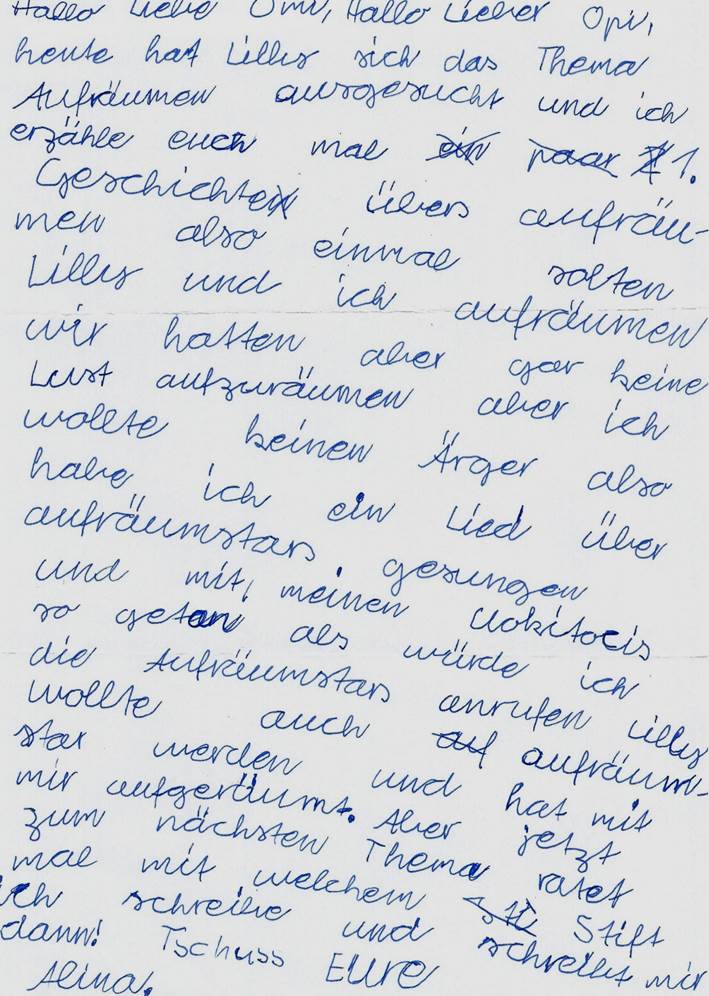 Hallo Liebe Omi, Hallo Lieber Opi,
heute hat Lilly sich das Thema
Aufräumen ausgesucht und ich
erzähle euch mal ein paar 1.
Geschichte übers aufräu-
men also einmal solten
Lilly und ich aufräumen
wir hatten aber gar keine
Lust aufzuräumen aber ich
wollte keinen Ärger also
habe ich ein Lied über
aufräumstars gesungen
und mit meinen
so getan als würde ich
die Aufräumstars anrufen Lilly
wollte auch auf aufräum-
star werden und hat mit
mir aufgeräumt. Aber jetzt
zum nächsten Thema ratet
mal mit welchem Sti Stift
ich schreibe und schreibt mir
dann! Tschüss EURE
Alina.